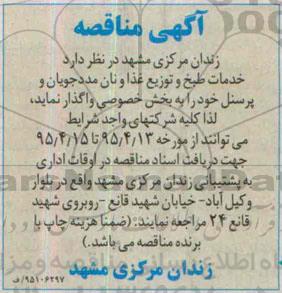 آگهی مناقصه
زندان مرکزی مشهد در نظر دارد
خدمات طبخ و توزیع غذا و نان مددجویان و
پرسنل خود را به بخش خصوصی واگذار نماید،
لذا کلیه شرکتهای واجد شرایط
می توانند از مورخه ۹۵٫۴٫۱۳ تا ۹۵٫۴٫۱۵
جهت دریافت اسناد مناقصه در اوقات اداری
به پشتیبانی زندان مرکزی مشهد واقع در بلوار
وکیل آباد- خیابان شهید قانع -روبروی شهید
قانع ۲۴ مراجعه نمایند. (ضمنا هزینه چاپ با
برنده مناقصه می باشد.)
زندان مرکزی مشهد
۹۵۱۰۶۲۹۷/ف